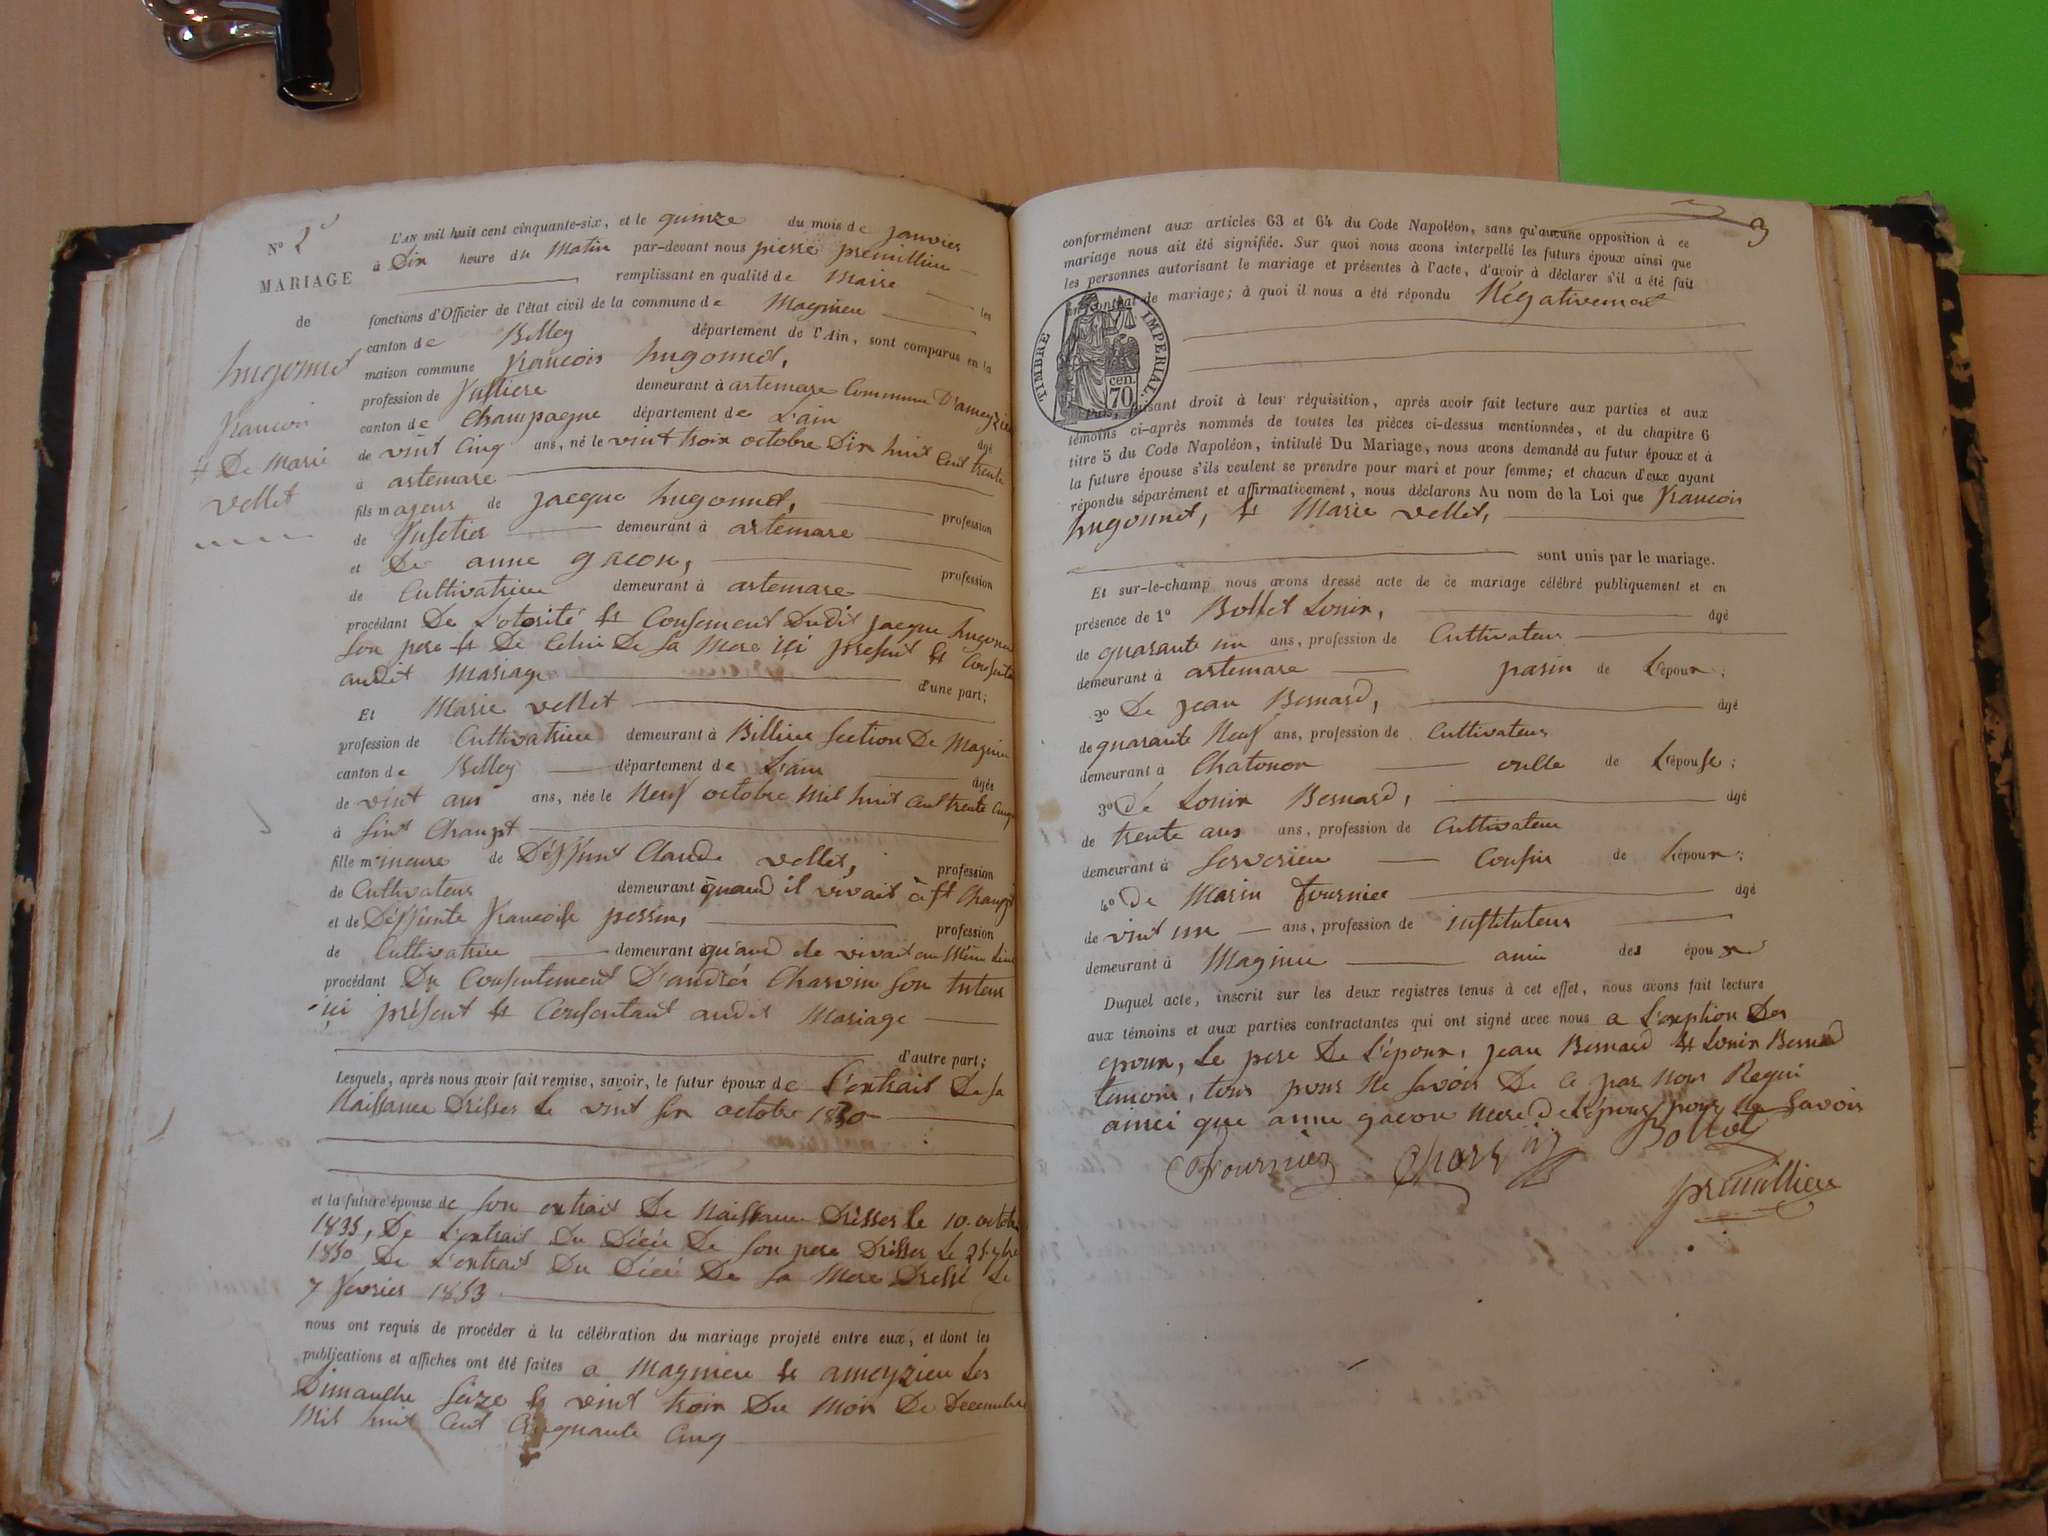 N° 2
MARIAGE
de
hugonnet
francois
& De Marie
vellet
L'AN mil huit cent cinquante-six, et le quinze du mois de janvier
à Dix heure du Matin par-devant nous pierre premillieu
remplissant en qualité de Maire les
fonctions d'Officier de l'état civil de la commune de Magnieu
canton de Belley département de l'Ain, sont comparus en la
maison commune francois hugonnet,
profession de demeurant à artemare Commune D'ameyzieu
canton de Champagne département de L'ain âgé
de vint Cinq ans, né le vint troix octobre Dix huit Cent trente
à artemare
fils majeur de jacque hugonnet, profession
de demeurant à artemare
et De anne gacon, profession
de Cultivatrice demeurant à artemare
procédant De L'otorité & Consement Dudit jacque hugonnet
son pere & De Celui De Sa Mere ici present & Consenta
audit Mariage d'une part;
Et Marie vellet
profession de Cultivatrice demeurant à Billieu section De Magnieu
canton de Belley département de L'ain âgée
de vint ans ans, née le Neuf octobre Mil huit Cent trente Cinq
à Sint Chanpt
fille mineure de Deffunt Claude vellet, profession
de Cultivateur demeurant à quand il vivait à St Chanpt
et de Deffunte francoise possin, profession
de Cultivatrice demeurant à quand ele vivait au Mème Lieu
procédant Du Consentement D'andréa Charvin son tuteur
ici présent & Consentant audit Mariage
d'autre part;
Lesquels, après nous avoir fait remise, savoir, le futur époux de L'extrait De sa
Naissance Drèsser Le vint six octobre 1830
et la future épouse de son extrait De Naissance Drèsser le 10 octobre
1835, De L'extrait Du Décée De son pere Drésser Le 25 7bre
1850 De L'extrait Du Décé De Sa Mere Dressé Le
7 fevrier 1853
nous ont requis de procéder à la célébration du mariage projeté entre eux, et dont les
publications et affiches ont été faites a Magnieu & ameyzieu Les
Dimanche seize & vint troix Du Mois De Decembre
Mil huit Cent Cinquante Cinq
3
conformément aux articles 63 et 64 du Code Napoléon, sans qu'aucune opposition à ce
mariage nous ait été signifiée. Sur quoi nous avons interpellé les futurs époux ainsi que
les personnes autorisant le mariage et présentes à l'acte, d'avoir à déclarer s'il a été fait
un contrat de mariage; à quoi il nous a été répondu Négativement
TIMBRE IMPERIAL
70 cen.
faisant droit à leur réquisition, après avoir fait lecture aux parties et aux
témoins ci-après nommés de toutes les pièces ci-dessus mentionnées, et du chapitre 6
titre 5 du Code Napoléon, intitulé Du Mariage, nous avons demandé au futur époux et à
la future épouse s'ils veulent se prendre pour mari et pour femme; et chacun d'eux ayant
répondu séparément et affirmativement, nous déclarons Au nom de la Loi que francois
hugonnet, & Marie vellet,
sont unis par le mariage.
Et sur-le-champ nous avons dressé acte de ce mariage célébré publiquement et en
présence de 1° Bollet Louix, âgé
de quarante un ans, profession de Cultivateur
demeurant à artemare parin de L'époux;
2° De jean Bernard, âgé
de quarante Neuf ans, profession de Cultivateur
demeurant à Chatonox oncle de L'épouse;
3° de Louix Bernard, âgé
de trente ans ans, profession de Cultivateur
demeurant à Serverieu Cousin de L'époux;
4° de Marin fournier âgé
de vint un ans, profession de instituteur
demeurant à Magnieu ami des époux
Duquel acte, inscrit sur les deux registres tenus à cet effet, nous avons fait lecture
aux témoins et aux parties contractantes qui ont signé avec nous a L'exption Des
epoux, Le pere De L'époux, jean Bernard & Louix Bernard
temoins, tous pour Ne savoir De ce par Nous Requi
ainci que anne gacon Mere de L'époux pour Ne savoir
Fournier Charvin Bollet
premillieu